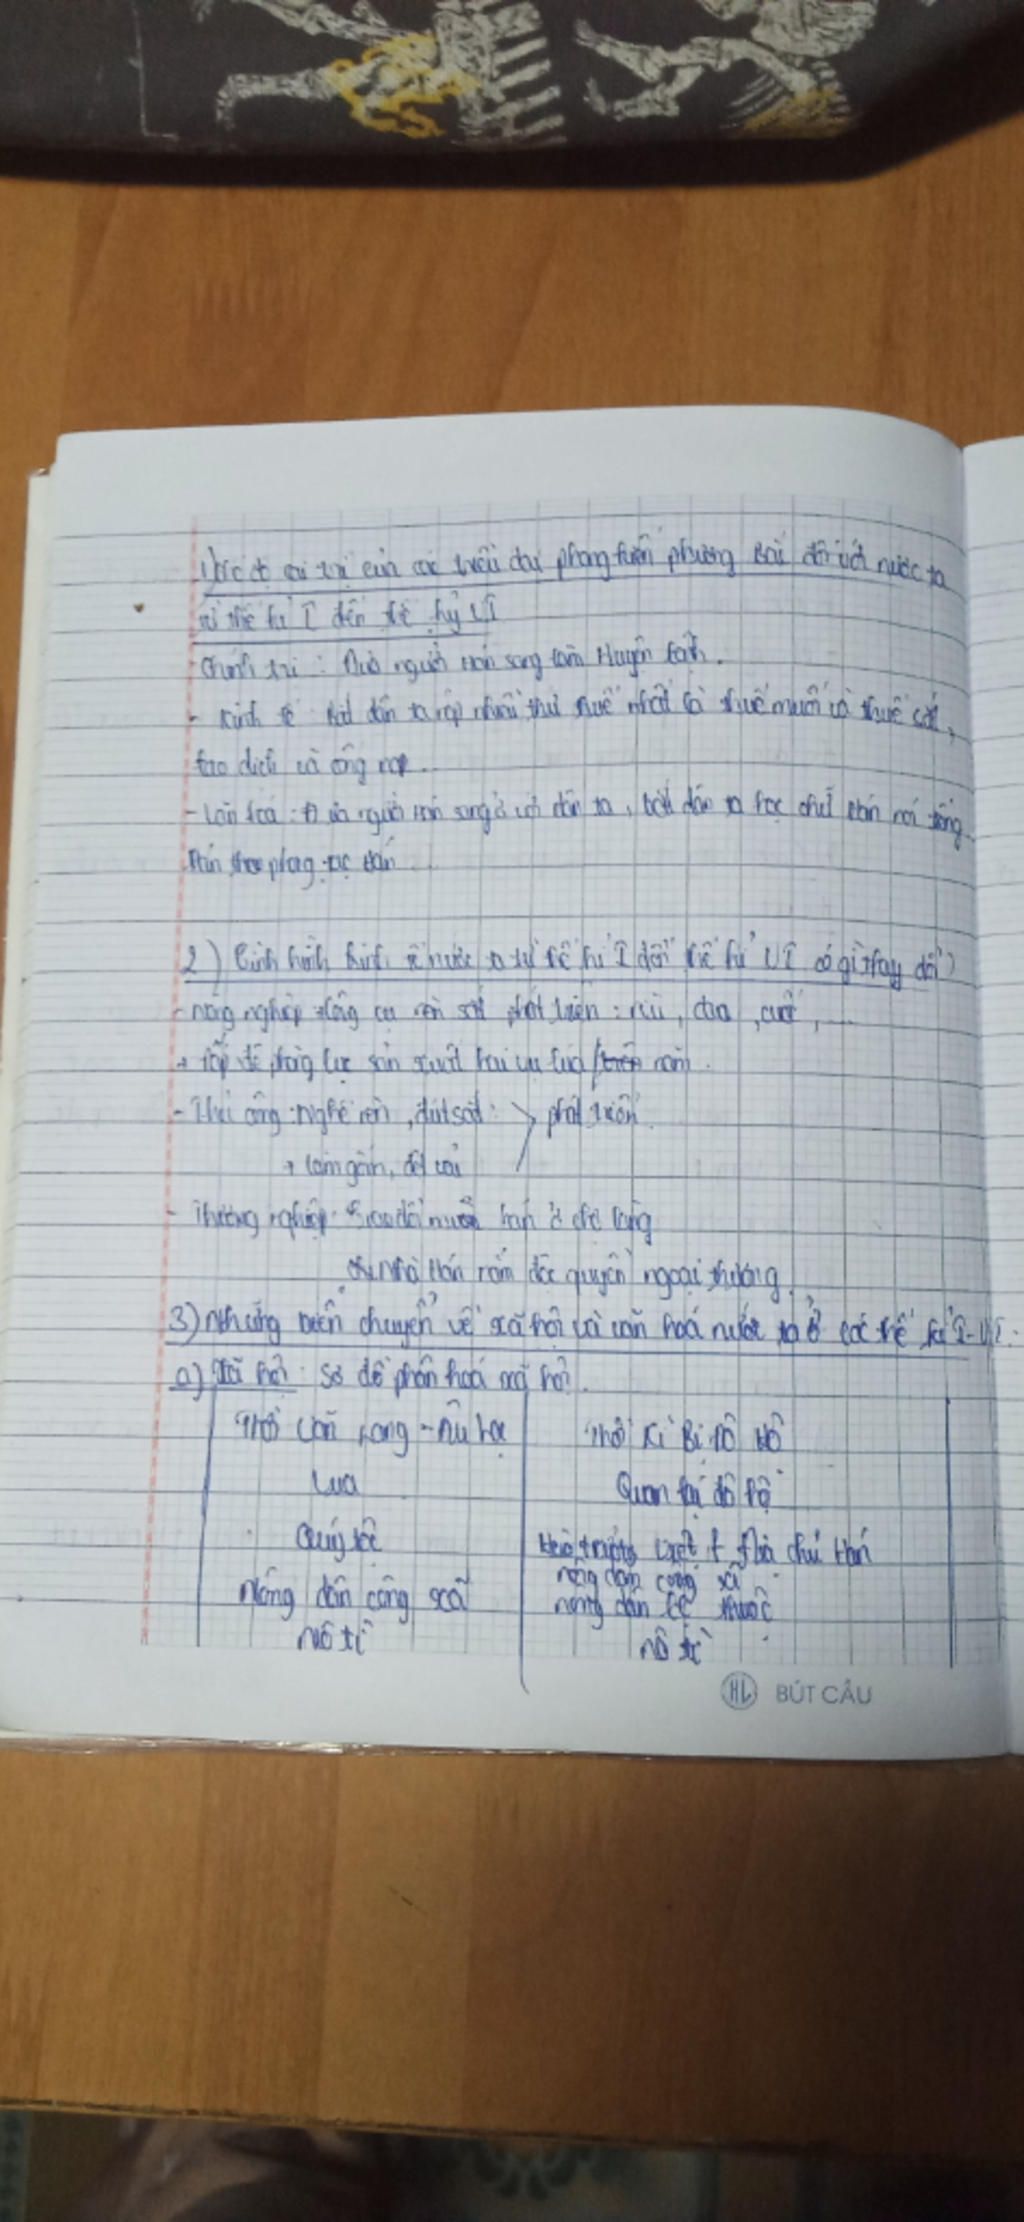 1) ách cai trị của các triều đại phong kiến phương Bắc đối với nước ta
từ thế kỉ I đến thế kỷ VI
Chính trị : Đưa người Hán sang làm Huyện lệnh.
- Kinh tế Bắt dân ta nộp nhiều thứ thuế nhất là thuế muối và thuế sắt,
lao dịch và cống nạp...
- Văn hoá : Đưa người Hán sang ở với dân ta, bắt dân ta học chữ Hán nói tiếng
Hán theo phong tục Hán...
2) Tình hình kinh tế nước ta từ thế kỉ I đến thế kỉ VI có gì thay đổi?
- nông nghiệp công cụ rèn sắt phát triển : rìu, dao, cuốc, ...
+ đắp đê phòng lụt sản xuất hai vụ lúa / năm.
- Thủ công : nghề rèn, đúc sắt : > phát triển
+ làm gốm, dệt vải
- Thương nghiệp : trao đổi mua bán ở chợ làng
Nhà Hán nắm độc quyền ngoại thương
3) Những biến chuyển về xã hội và văn hoá nước ta ở các thế kỉ I-VI.
a) Xã hội : Sơ đồ phân hoá xã hội.
Thời Văn Lang - Âu Lạc Thời Kì Bị Đô Hộ
Vua Quan lại đô hộ
Quý tộc Hào trưởng Việt + địa chủ Hán
Nông dân công xã nông dân công xã
nông dân lệ thuộc
Nô tì nô tì
HL BÚT CÂU